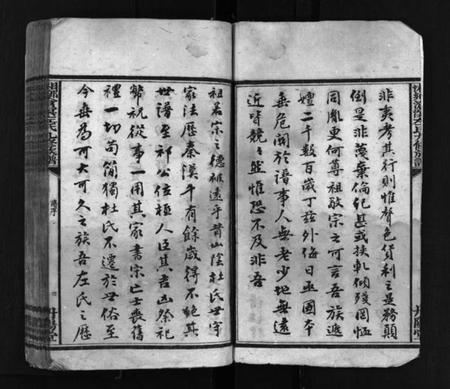 非夷考其行則惟聲色貨利之是務顛
倒是非蔑棄倫紀甚或扶乩傾殘罔恤
同胤更何尊祖敬宗之可言吾族遞
嬗二千數百歲丁茲外侮日亟國本
無危關於譜事人無老少地無遠
近皆兢兢然惟恐不及非吾
祖若宗之德維遠乎昔山陰杜氏世守
家法歷秦漢千有餘歲得不絕其
世譜至祁公位極人臣其吉凶祭祀
齋祝從事一用其家書宗亡士喪舊
禮一切苟簡獨杜氏不遷於世俗至
今無為可大可久之族吾左氏之歷